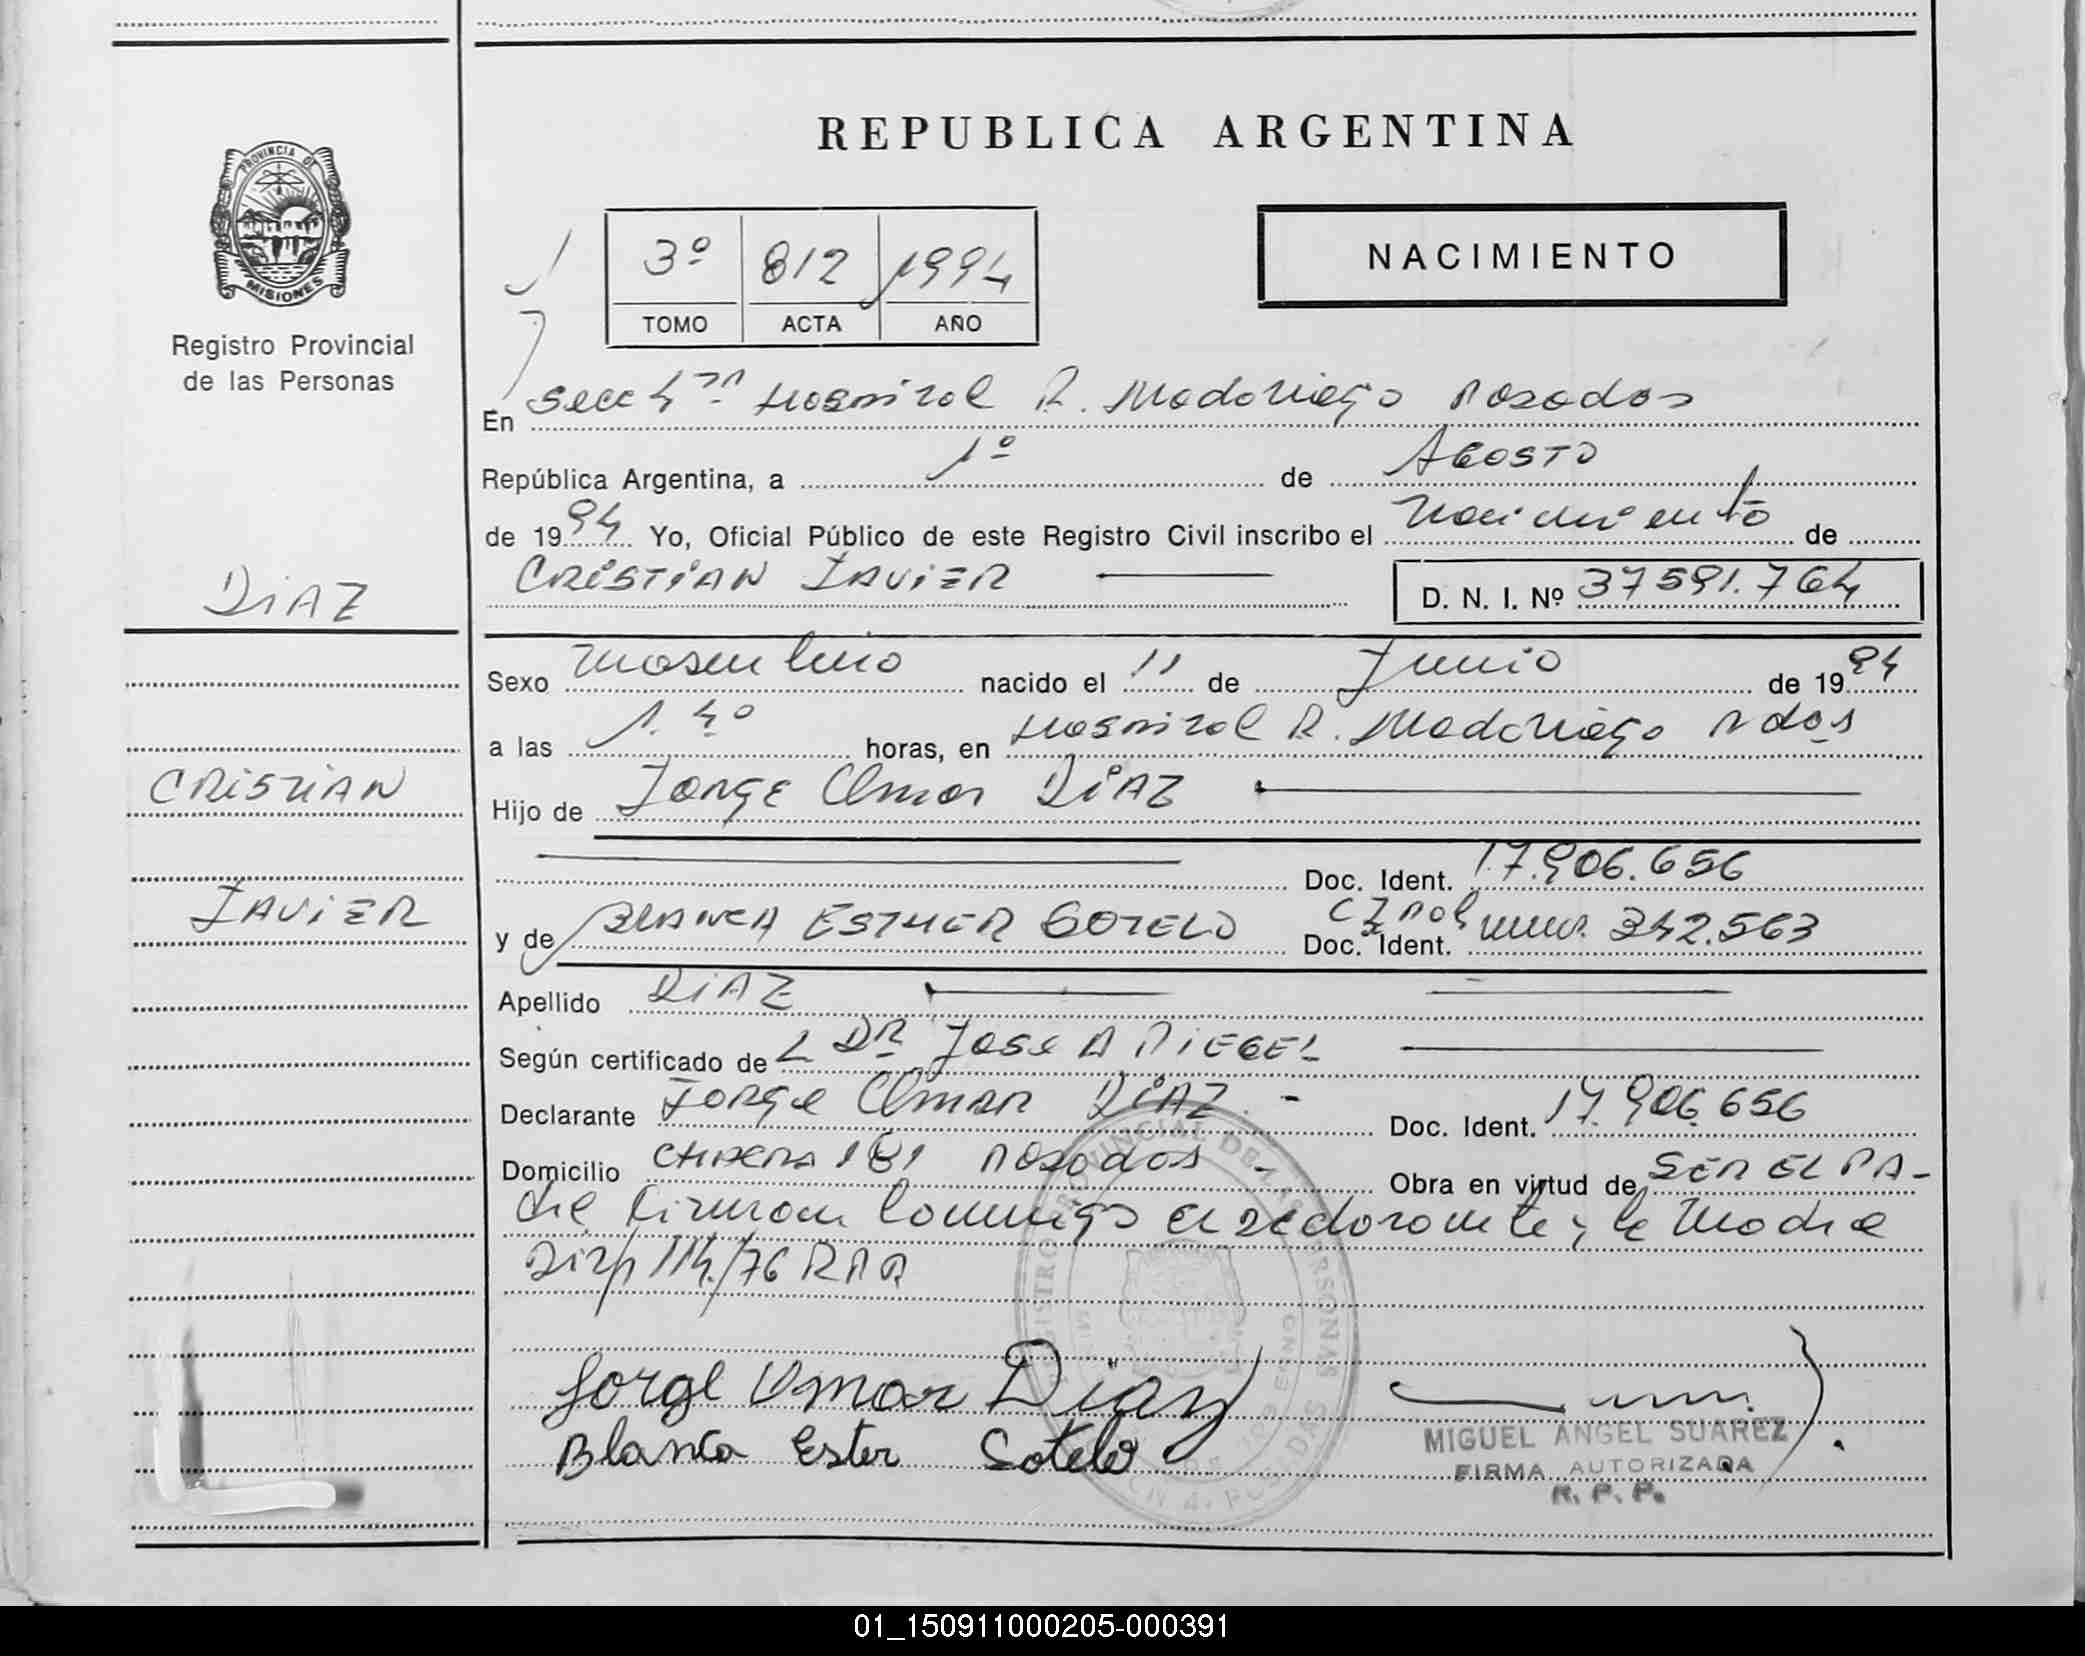 REPUBLICA ARGENTINA
PROVINCIA DE
MISIONES
Registro Provincial
de las Personas
3º 812 1994
TOMO ACTA AÑO
NACIMIENTO
En Secc 4ta Hospital R. Madariaga Posadas
República Argentina, a 1º de AGOSTO
de 1994 Yo, Oficial Público de este Registro Civil inscribo el Nacimiento de
CRISTIAN JAVIER D. N. I. Nº 37591.764
DiAZ
CRISTIAN
JAVIER
Sexo masculino nacido el 11 de Junio de 1994
a las horas, en Hospital R. Madariaga Pdas
Hijo de Jorge Omar DiAZ
Doc. Ident. 17.906.656
y de BLANCA ESTHER SOTELO Doc. Ident. 342.563
Apellido DiAZ
Según certificado de L DR JOSE A
Declarante Jorge Omar DiAZ.- Doc. Ident. 17.906.656
Domicilio 181 Posadas - Obra en virtud de SER EL PA-
dre Firman conmigo el declarante y la Madre
Disp 114/76 RPP
Jorge Omar Diaz
Blanca Ester Sotelo
MIGUEL ANGEL SUAREZ
FIRMA AUTORIZADA
R. P. P.
REGISTRO PROVINCIAL DE LAS PERSONAS
01_150911000205-000391